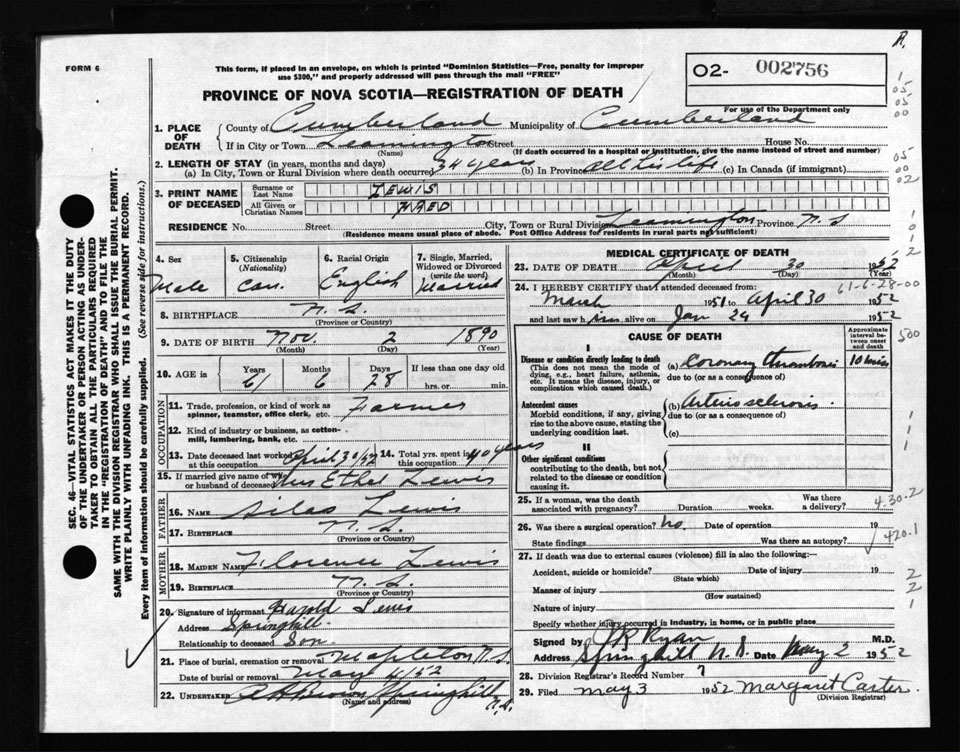 R.
FORM 6
This form, if placed in an envelope, on which is printed "Dominion Statistics—Free, penalty for improper
use $300," and properly addressed will pass through the mail "FREE"
02- 002756
For use of the Department only
PROVINCE OF NOVA SCOTIA—REGISTRATION OF DEATH
1. PLACE OF DEATH
County of Cumberland Municipality of Cumberland
If in City or Town Leamington Street House No.
(Name) (If death occurred in a hospital or institution, give the name instead of street and number)
2. LENGTH OF STAY (in years, months and days)
(a) In City, Town or Rural Division where death occurred 34 years (b) In Province all his life (c) In Canada (if immigrant)
3. PRINT NAME OF DECEASED
Surname or Last Name LEWIS
All Given or Christian Names FRED
RESIDENCE No. Street City, Town or Rural Division Leamington Province N.S
(Residence means usual place of abode. Post Office Address for residents in rural parts not sufficient)
4. Sex Male
5. Citizenship (Nationality) Can.
6. Racial Origin English
7. Single, Married, Widowed or Divorced (write the word) Married
8. BIRTHPLACE N.S.
(Province or Country)
9. DATE OF BIRTH Nov. 2 1890
(Month) (Day) (Year)
10. AGE in Years Months Days If less than one day old
61 6 28 hrs. or min.
OCCUPATION
11. Trade, profession, or kind of work as spinner, teamster, office clerk, etc. Farmer
12. Kind of industry or business, as cotton-mill, lumbering, bank, etc.
13. Date deceased last worked at this occupation April 30/52
14. Total yrs. spent in this occupation 40 years
15. If married give name of wife or husband of deceased Mrs Ethel Lewis
FATHER
16. NAME Silas Lewis
17. BIRTHPLACE N.S.
(Province or Country)
MOTHER
18. MAIDEN NAME Florence Lewis
19. BIRTHPLACE N.S.
(Province or Country)
20. Signature of informant Harold Lewis
Address Springhill
Relationship to deceased Son
21. Place of burial, cremation or removal Mapleton N.S.
Date of burial or removal May 4/52
22. UNDERTAKER Brown Springhill N.S.
(Name and address)
MEDICAL CERTIFICATE OF DEATH
23. DATE OF DEATH April 30 1952
(Month) (Day) (Year)
61-6-28-00
24. I HEREBY CERTIFY that I attended deceased from:
March 1951 to April 30 1952
and last saw him alive on Jan 24 1952
CAUSE OF DEATH
Approximate interval between onset and death
I
Disease or condition directly leading to death
(This does not mean the mode of dying, e.g., heart failure, asthenia, etc. It means the disease, injury, or complication which caused death.)
(a) Coronary thrombosis 10 mins
due to (or as a consequence of)
Antecedent causes
Morbid conditions, if any, giving rise to the above cause, stating the underlying condition last.
(b) Arterio sclerosis.
due to (or as a consequence of)
(c)
II
Other significant conditions
contributing to the death, but not related to the disease or condition causing it.
25. If a woman, was the death associated with pregnancy? Duration weeks. Was there a delivery?
26. Was there surgical operation? no. Date of operation 19
State findings Was there an autopsy?
27. If death was due to external causes (violence) fill in also the following:—
Accident, suicide or homicide? Date of injury 19
(State which)
Manner of injury
(How sustained)
Nature of injury
Specify whether injury occurred in industry, in home, or in public place
Signed by Ryan M.D.
Address Springhill N.S. Date May 2 1952
28. Division Registrar's Record Number 7
29. Filed May 3 1952 Margaret Carter.
(Division Registrar)
SEC. 46—VITAL STATISTICS ACT MAKES IT THE DUTY
OF THE UNDERTAKER OR PERSON ACTING AS UNDER-
TAKER TO OBTAIN ALL THE PARTICULARS REQUIRED
IN THE "REGISTRATION OF DEATH" AND TO FILE THE
SAME WITH THE DIVISION REGISTRAR WHO SHALL ISSUE THE BURIAL PERMIT.
WRITE PLAINLY WITH UNFADING INK. THIS IS A PERMANENT RECORD.
Every item of information should be carefully supplied. (See reverse side for instructions.)
1
05
05
00
05
00
02
1
0
1
2
500
1
1
1
4.30.2
420.1
2
2
1